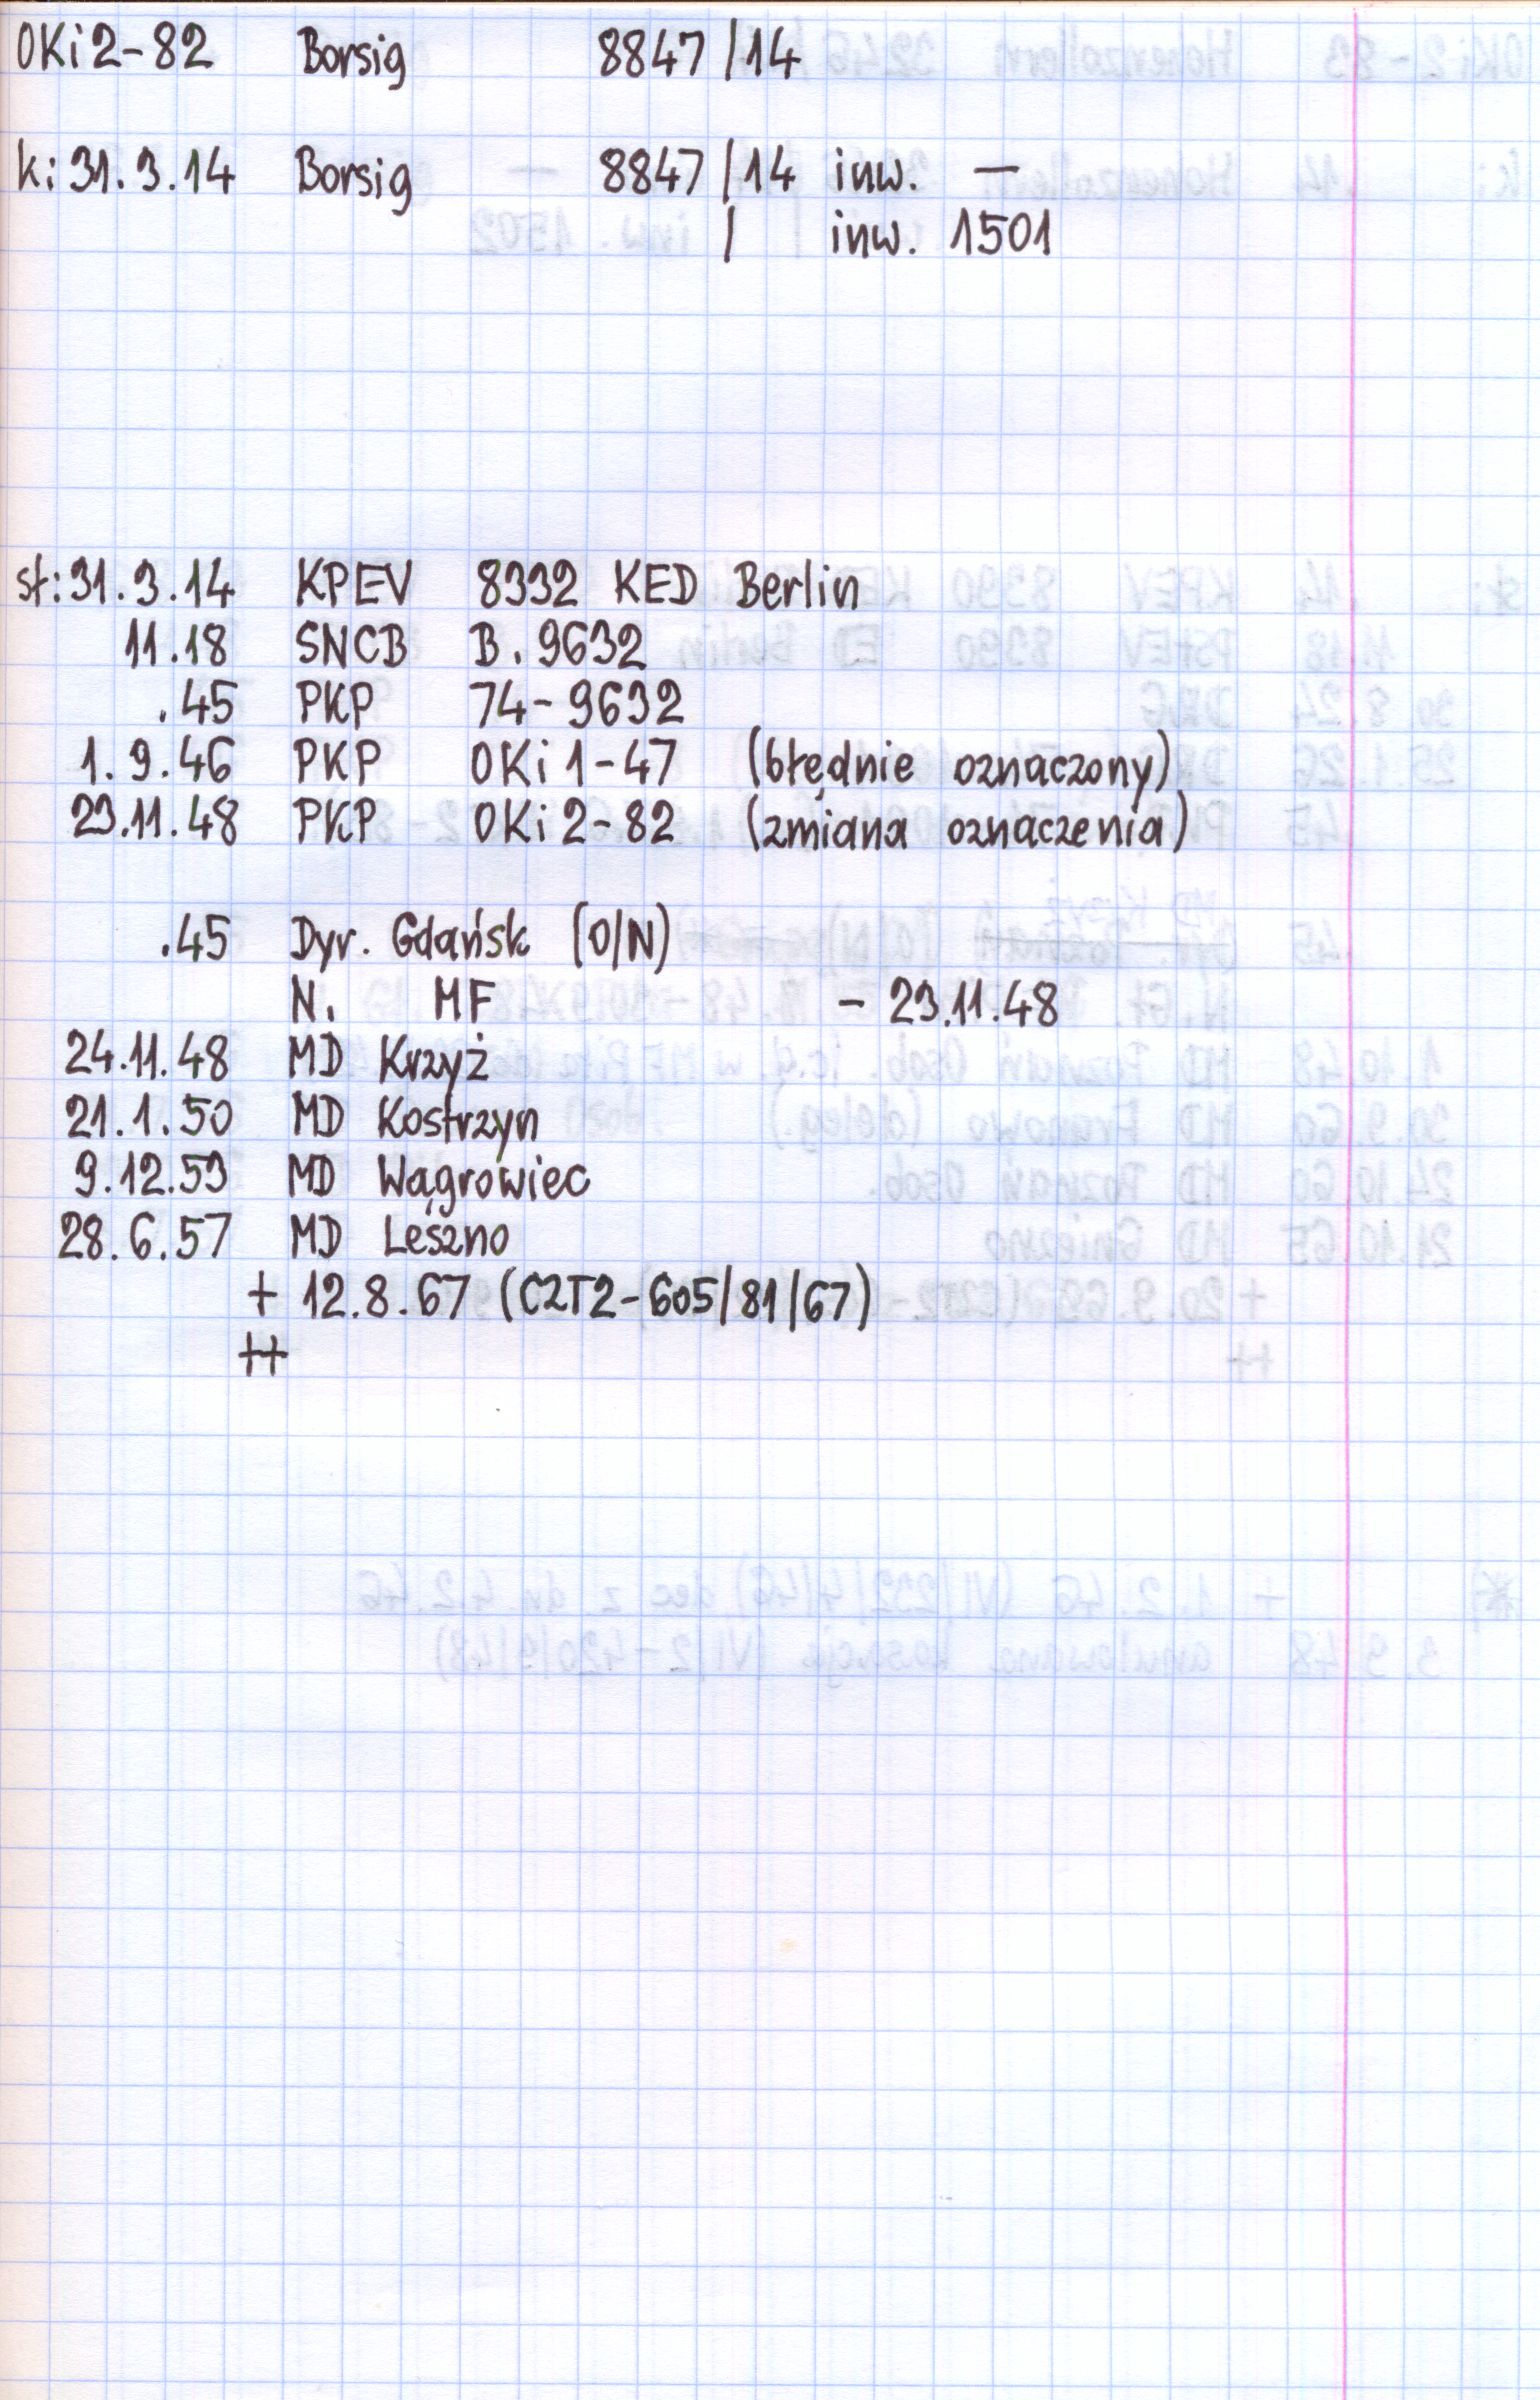 OKi2-82 Borsig 8847/14
k: 31.3.14 Borsig 8847/14 inw. —
/ inw. 1501
st: 31.3.14 KPEV 8332 KED Berlin
11.18 SNCB B. 9632
.45 PKP 74-9632
1.9.46 PKP OKi1-47 (błędnie oznaczony)
23.11.48 PKP OKi2-82 (zmiana oznaczenia)
.45 Dyr. Gdańsk (O/N)
N. MF - 23.11.48
24.11.48 MD Krzyż
21.1.50 MD Kostrzyn
9.12.53 MD Wągrowiec
28.6.57 MD Leszno
+ 12.8.67 (C2T2-605/81/67)
++